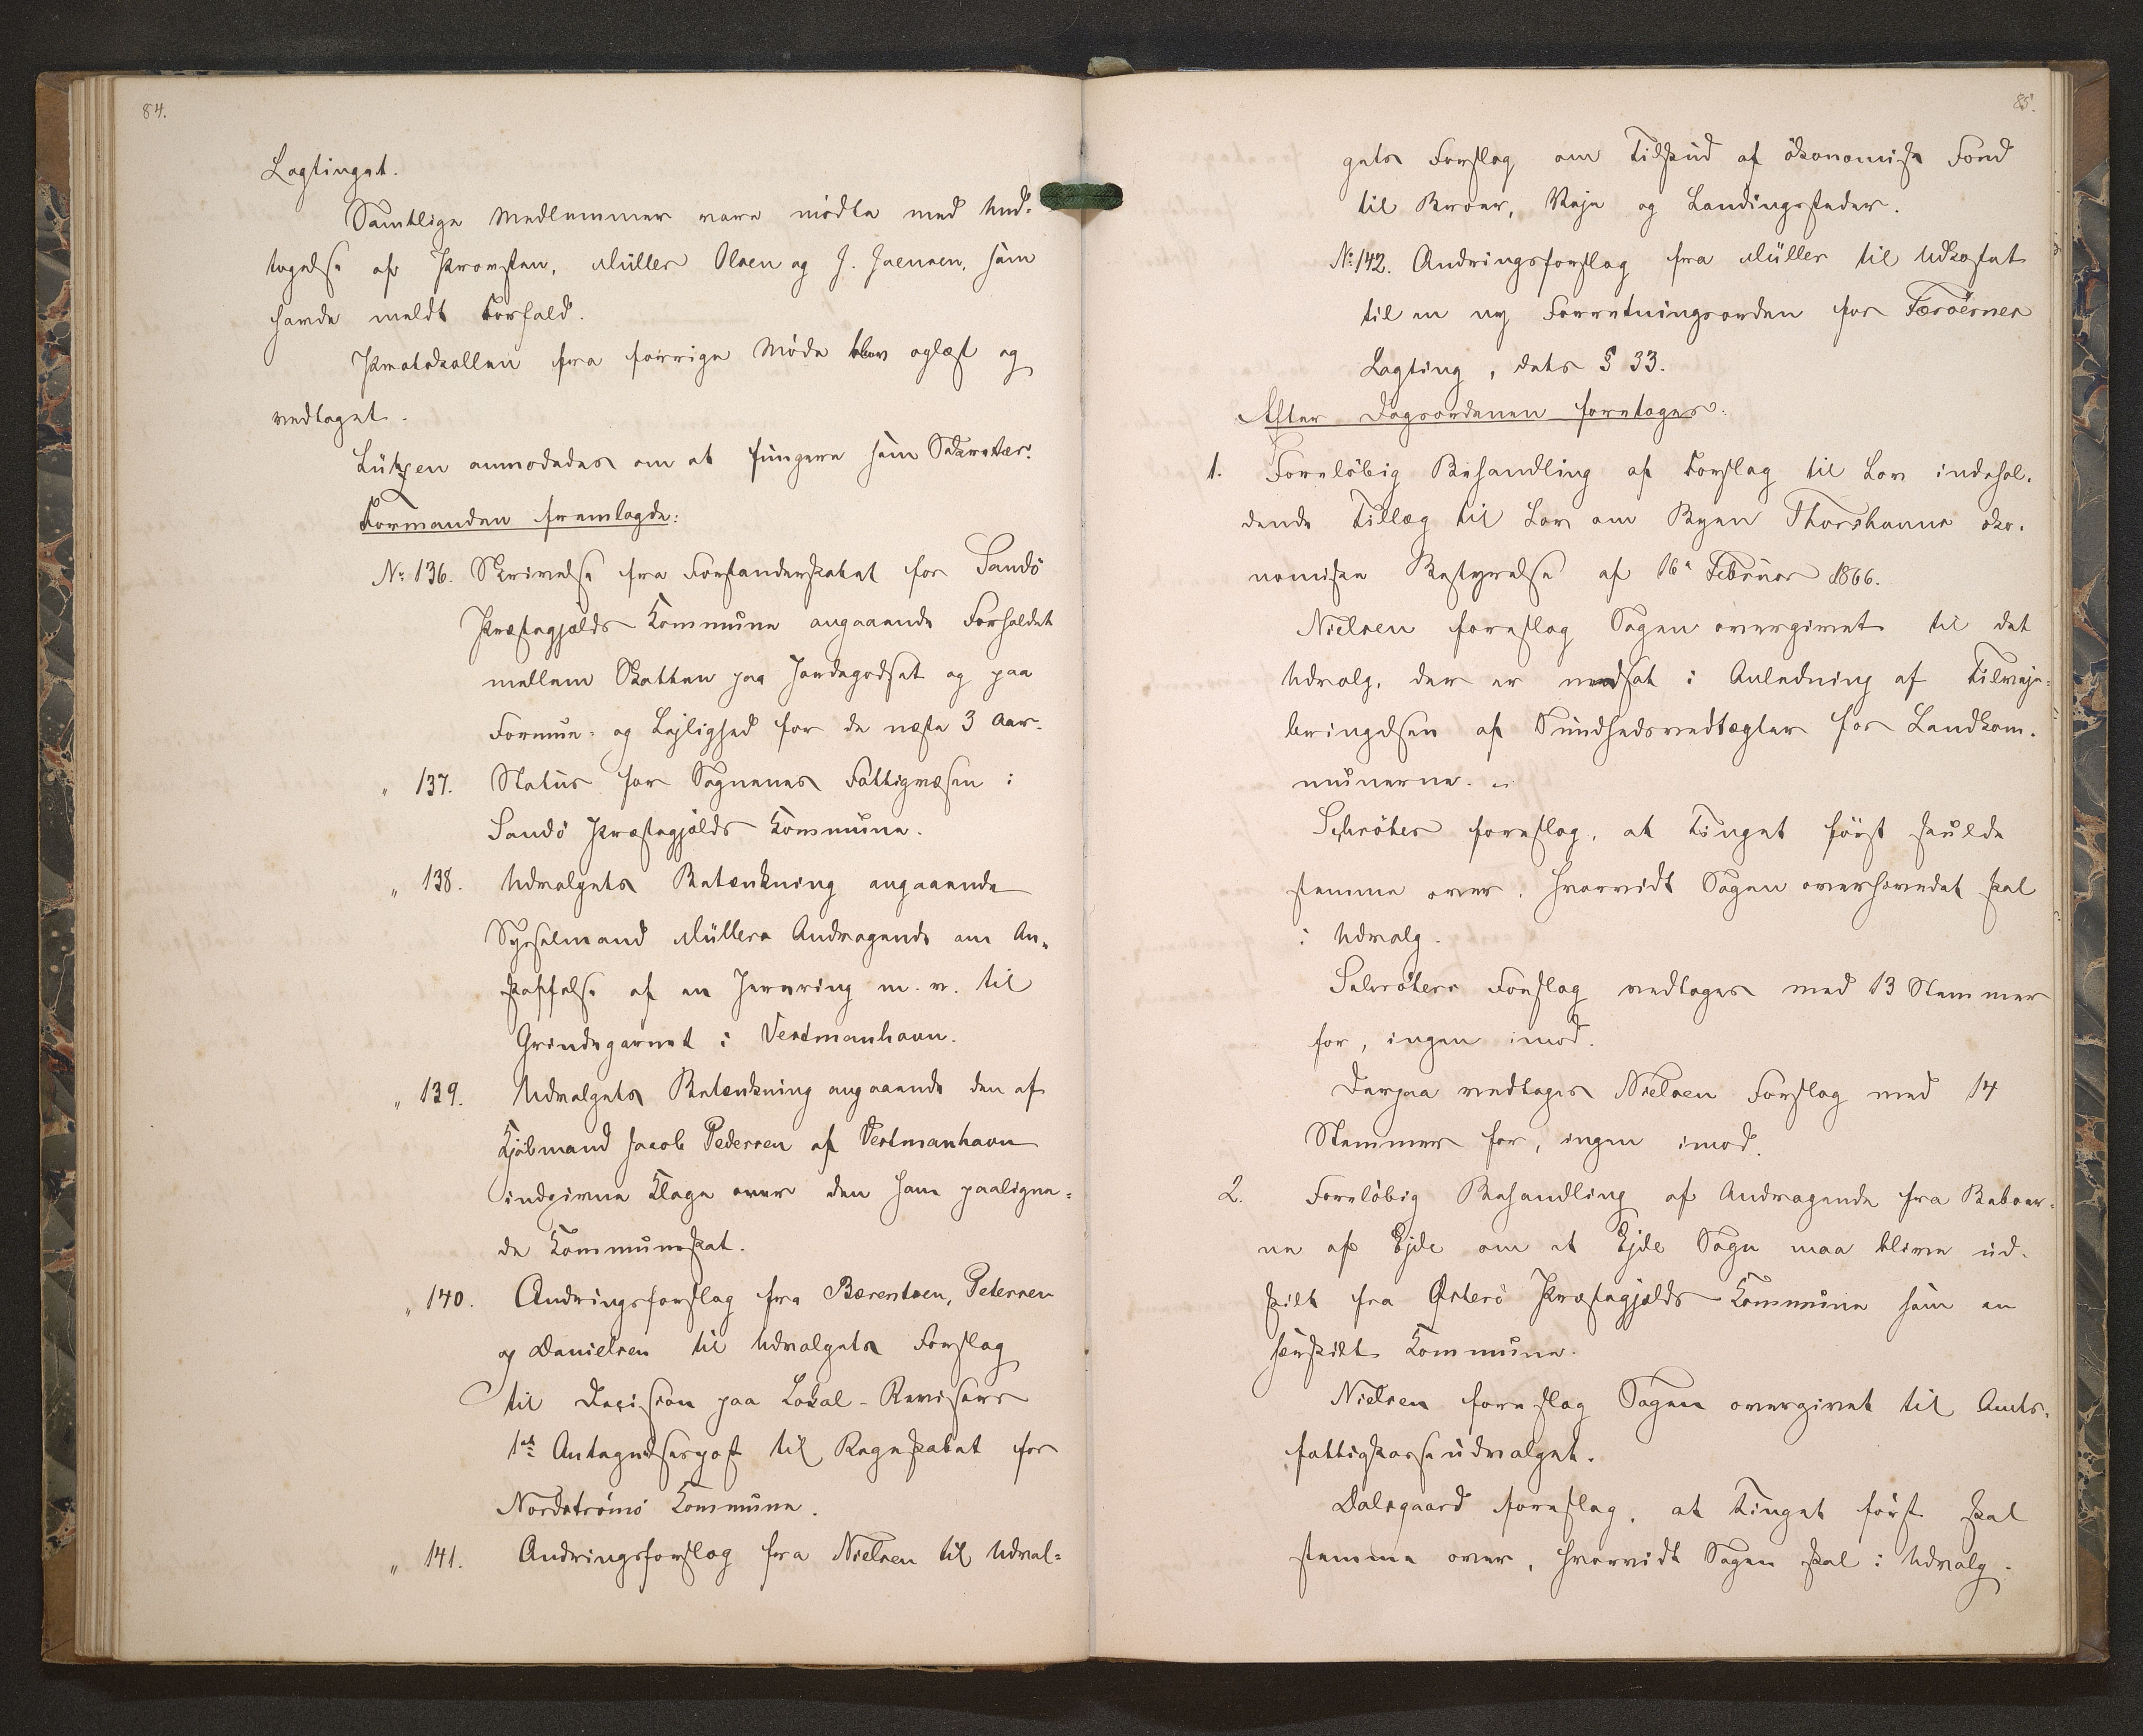 84.
Lagtinget.
Samtlige Medlemmer vare mödte med Und-
tagelse af Provsten, Müller Olsen og J. Joensen, som
havde meldt Forfald.
Protokollen fra forrige Möde blev oplæst og
vedtaget.
Lützen anmodedes om at fungere som Sekretær.
Formanden fremlagde:
No 136. Skrivelse fra Forstanderskabet for Sandö
Præstegjælds Kommune angaaende Forholdet
mellem Skatten paa Jordegodset og paa
Formue- og Lejlighed for de næste 3 Aar.
" 137. Status for Sognenes Fattigvæsen i
Sandö Præstegjælds Kommune.
" 138. Udvalgets Betænkning angaaende
Sysselmand Müllers Andragende om An-
skaffelse af en Jernring m. v. til
Grindegarnet i Vestmanhavn.
" 139. Udvalgets Betænkning angaaende den af
Kjöbmand Jacob Pedersen af Vestmanhavn
indgivne Klage over den ham paaligne=
de Kommuneskat.
" 140. Ændringsforslag fra Bærentsen, Petersen
og Danielsen til Udvalgets Forslag
til Decision paa Lokal-Revisors
1ste Antegnelsespost til Regnskabet for
Nordströmö Kommune.
" 141. Ændringsforslag fra Nielsen til Udval=
85.
gets Forslag om Tilskud af ökonomisk Fond
til Broer, Veje og Landingssteder.
No 142. Ændringsforslag fra Müller til Udkastet
til en ny Forretningsorden for Færöernes
Lagting, dets § 33.
Efter Dagsordenen foretoges:
1. Foreløbig Behandling af Forslag til Lov indehol-
dende Tillæg til Lov om Byen Thorshavns öko-
nomiske Bestyrelse af 16de Februar 1866.
Nielsen foreslog Sagen overgivet til det
Udvalg, der er nedsat i Anledning af Tilveje-
bringelsen af Sundhedsvedtægter for Landkom-
munerne.
Schröter foreslog, at Tinget först skulde
stemme over, hvorvidt Sagen overhovedet skal
i Udvalg.
Schröters Forslag vedtoges med 13 Stemmer
for, ingen imod.
Derpaa vedtoges Nielsen Forslag med 14
Stemmer for, ingen imod.
2. Forelöbig Behandling af Andragende fra Beboer-
ne af Ejde om at Ejde Sogn maa blive ud-
skilt fra Østerö Præstegjælds Kommune som en
særskilt Kommune.
Nielsen foreslog Sagen overgivet til Amts-
fattigkasseudvalget.
Dalsgaard foreslog, at Tinget först skal
stemme over, hvorvidt Sagen skal i Udvalg.